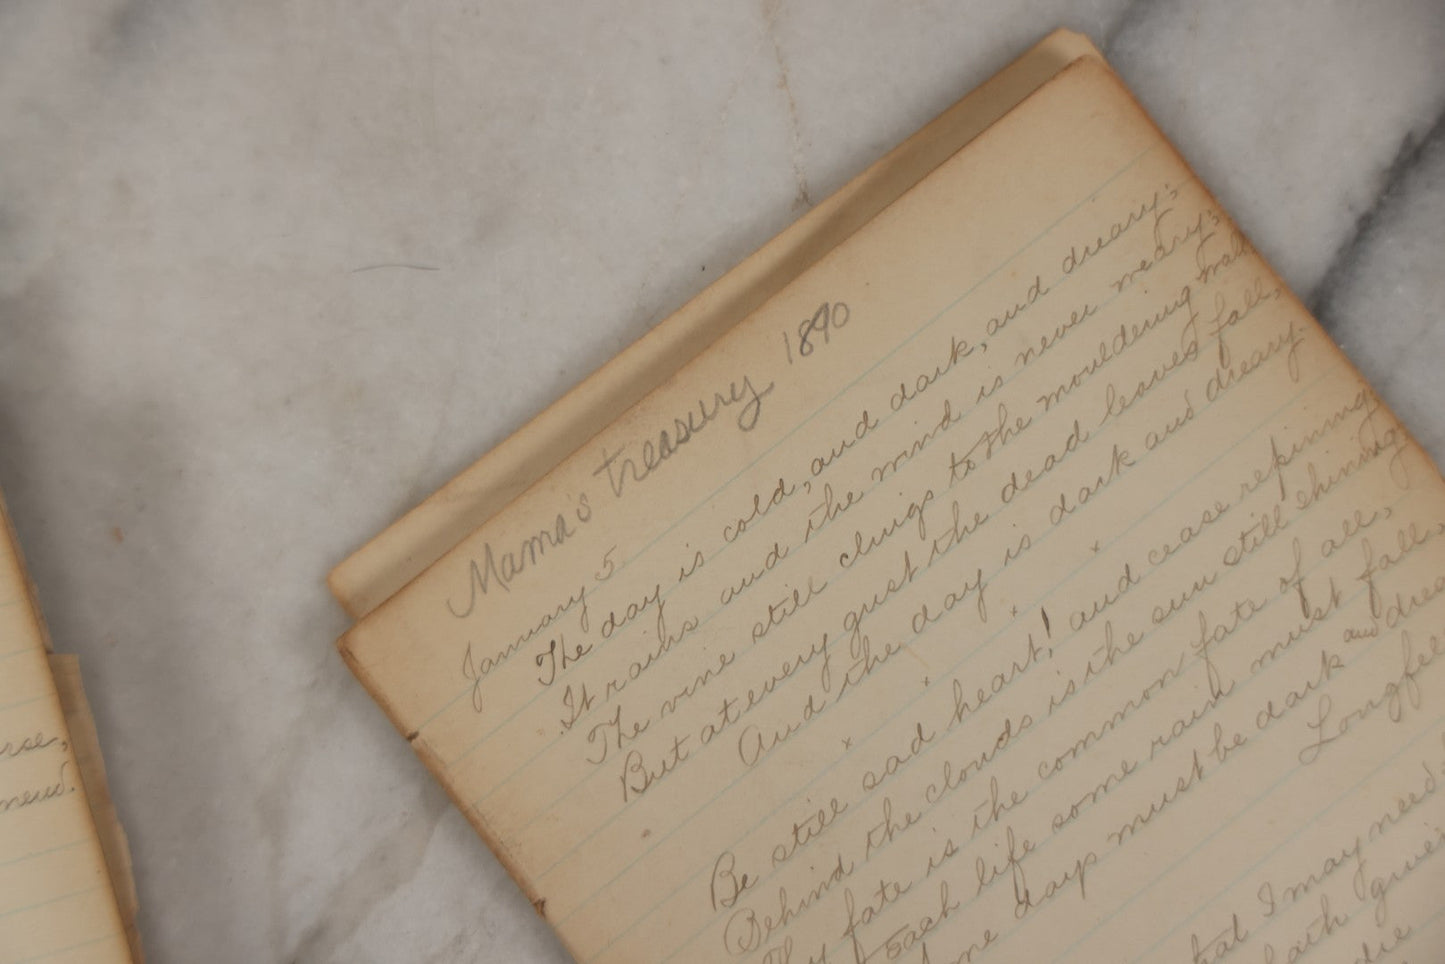 Mama's treasury 1890
January 5
The day is cold, and dark, and dreary;
It rains and the wind is never weary;
The vine still clings to the mouldering wall
But at every gust the dead leaves fall,
And the day is dark and dreary.
x x x x
Be still sad heart! and cease repining
Behind the clouds is the sun still shining
Thy fate is the common fate of all,
Each life some rain must fall,
days must be dark and drea
Longfel
that I may need
faith
die